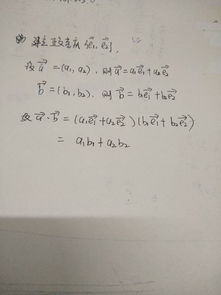 建立 直交基底 {e₁⃗, e₂⃗},
设 a⃗ = (a₁, a₂), 则 a⃗ = a₁e₁⃗ + a₂e₂⃗
b⃗ = (b₁, b₂), 则 b⃗ = b₁e₁⃗ + b₂e₂⃗
故 a⃗·b⃗ = (a₁e₁⃗ + a₂e₂⃗)(b₁e₁⃗ + b₂e₂⃗)
= a₁b₁ + a₂b₂